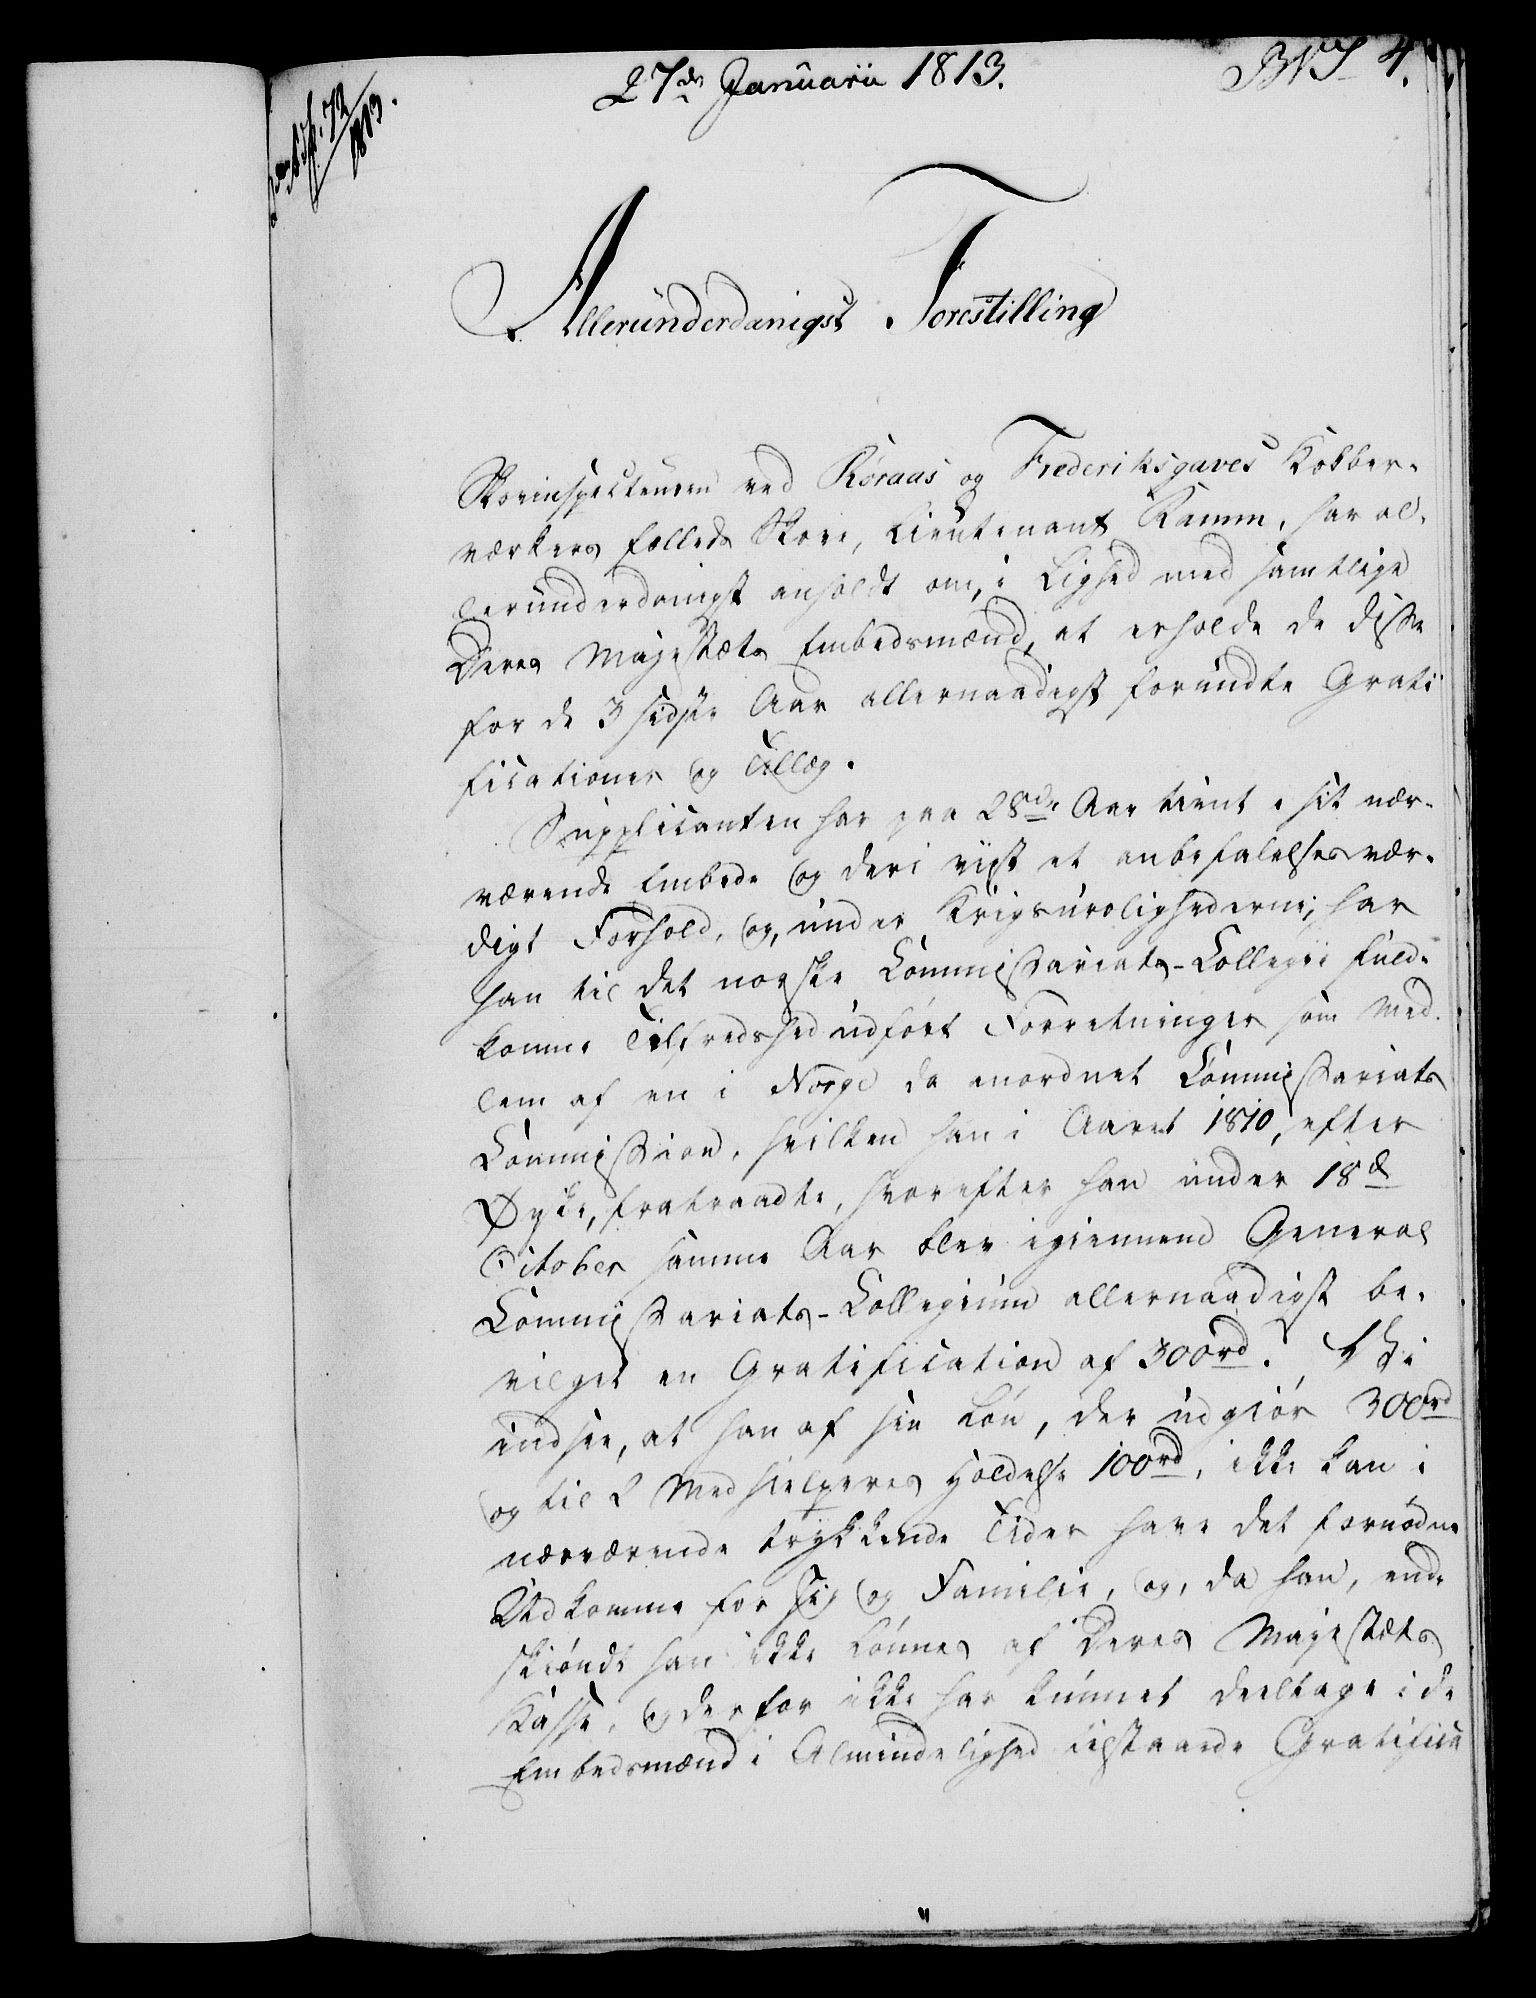 27de Januarii 1813.
BWS 4.
1813.
Allerunderdanigst Forestilling
Skovinspecteuren ved Röraas og Frederiksgaves Kobber-
værkers fælleds Skove, Lieutenant Ramm, har al-
lerunderdanigst anholdt om, i Lighed med samtlige
Deres Majestæts Embedsmænd, at erholde de disse
for de 3 sidste Aar allernaadigst forundte Grati
ficationer og Tillæg.
Supplicanten har paa 28de Aar tient i sit nær-
værende Embede og deri viist et anbefalelsesvær-
digt Forhold, og, under Krigsurolighederne, har
han til det norske Commissariats-Collegii fuld-
komne Tilfredshed udført Forretninger som Med-
lem af en i Norge da anordnet Commissariats
Commission, hvilken han i Aaret 1810, efter
Ønske, fratraadte, hvorefter han under 18de
October samme Aar blev igiennem General
Commissariats-Collegium allernaadigst be-
vilget en Gratification af 300rd. Vi
indsee, at han af sin Løn, der udgiör 300rd
og til 2 Medhielperes Holdelse 100rd, ikke kan i
nærværende trykkende Tider have det fornødne
Udkomme for sig og Familie, og, da han, end-
skiöndt han ikke lönnes af Deres Majestæts
Kasse, og derfor ikke har kunnet deeltage i de
Embedsmænd i Almindelighed tilstaaede Gratifica